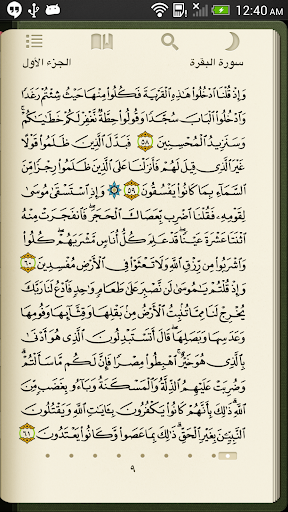 12:40 AM
سورة البقرة
الجزء الأول
وَإِذْ قُلْنَا ادْخُلُوا هَٰذِهِ الْقَرْيَةَ فَكُلُوا مِنْهَا حَيْثُ شِئْتُمْ رَغَدًا
وَادْخُلُوا الْبَابَ سُجَّدًا وَقُولُوا حِطَّةٌ نَّغْفِرْ لَكُمْ خَطَايَاكُمْ ۚ
وَسَنَزِيدُ الْمُحْسِنِينَ ٥٨ فَبَدَّلَ الَّذِينَ ظَلَمُوا قَوْلًا
غَيْرَ الَّذِي قِيلَ لَهُمْ فَأَنزَلْنَا عَلَى الَّذِينَ ظَلَمُوا رِجْزًا مِّنَ
السَّمَاءِ بِمَا كَانُوا يَفْسُقُونَ ٥٩ وَإِذِ اسْتَسْقَىٰ مُوسَىٰ
لِقَوْمِهِ فَقُلْنَا اضْرِب بِّعَصَاكَ الْحَجَرَ ۖ فَانفَجَرَتْ مِنْهُ
اثْنَتَا عَشْرَةَ عَيْنًا ۖ قَدْ عَلِمَ كُلُّ أُنَاسٍ مَّشْرَبَهُمْ ۖ كُلُوا
وَاشْرَبُوا مِن رِّزْقِ اللَّهِ وَلَا تَعْثَوْا فِي الْأَرْضِ مُفْسِدِينَ ٦٠
وَإِذْ قُلْتُمْ يَا مُوسَىٰ لَن نَّصْبِرَ عَلَىٰ طَعَامٍ وَاحِدٍ فَادْعُ لَنَا رَبَّكَ
يُخْرِجْ لَنَا مِمَّا تُنبِتُ الْأَرْضُ مِن بَقْلِهَا وَقِثَّائِهَا وَفُومِهَا
وَعَدَسِهَا وَبَصَلِهَا ۖ قَالَ أَتَسْتَبْدِلُونَ الَّذِي هُوَ أَدْنَىٰ
بِالَّذِي هُوَ خَيْرٌ ۚ اهْبِطُوا مِصْرًا فَإِنَّ لَكُم مَّا سَأَلْتُمْ ۗ
وَضُرِبَتْ عَلَيْهِمُ الذِّلَّةُ وَالْمَسْكَنَةُ وَبَاءُوا بِغَضَبٍ مِّنَ
اللَّهِ ۗ ذَٰلِكَ بِأَنَّهُمْ كَانُوا يَكْفُرُونَ بِآيَاتِ اللَّهِ وَيَقْتُلُونَ
النَّبِيِّينَ بِغَيْرِ الْحَقِّ ۗ ذَٰلِكَ بِمَا عَصَوا وَّكَانُوا يَعْتَدُونَ ٦١
٩